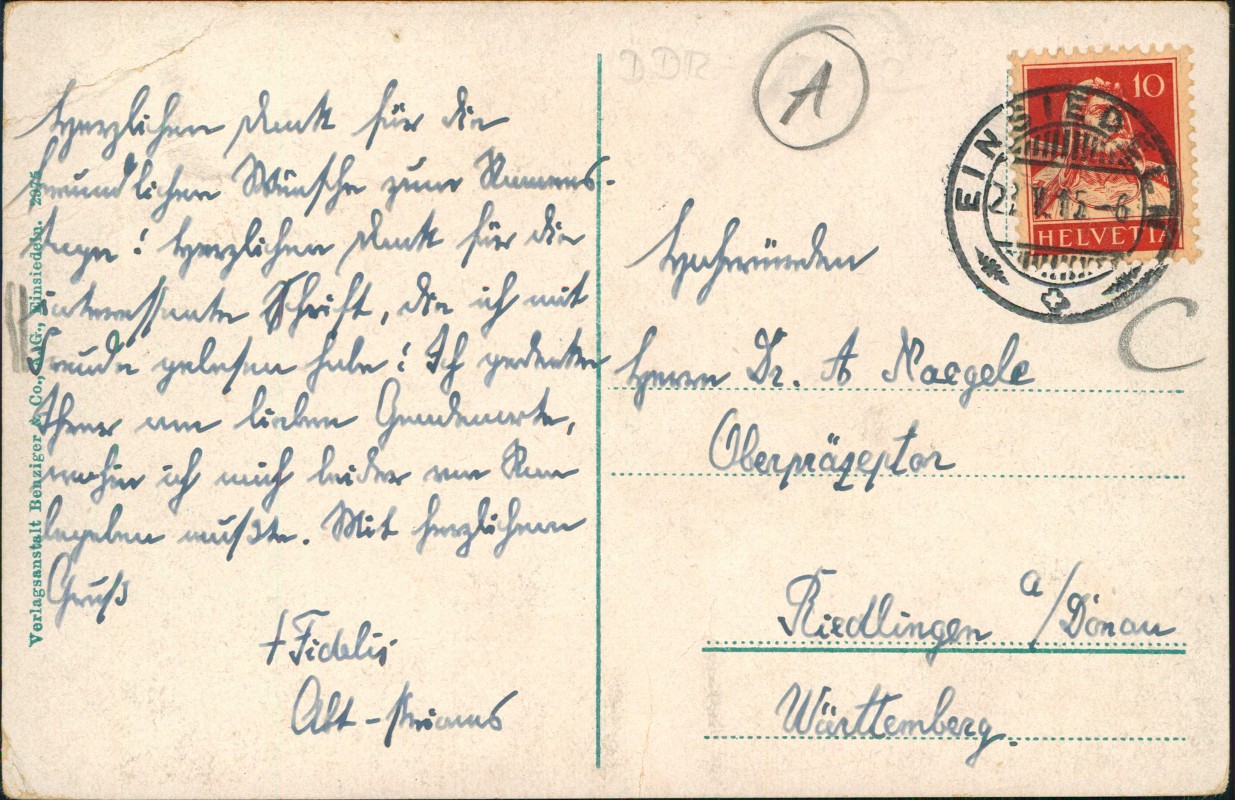 Herzlichen Dank für die
freundlichen Wünsche zum Namens-
tage! Herzlichen Dank für die
interessante Schrift, die ich mit
Freude gelesen habe! Ich gedenke
Ihrer am lieben Gnadenorte,
wohin ich mich leider
begeben mußte. Mit herzlichem
Gruß
+ Fidelis
Abt-Primas
Verlagsanstalt Benziger & Co., A.G., Einsiedeln. 2975
DDR
A
C
10
HELVETIA
EINSIEDELN
Hochwürden
Herrn Dr. A Naegele
Oberpräzeptor
Riedlingen a/Donau
Württemberg.